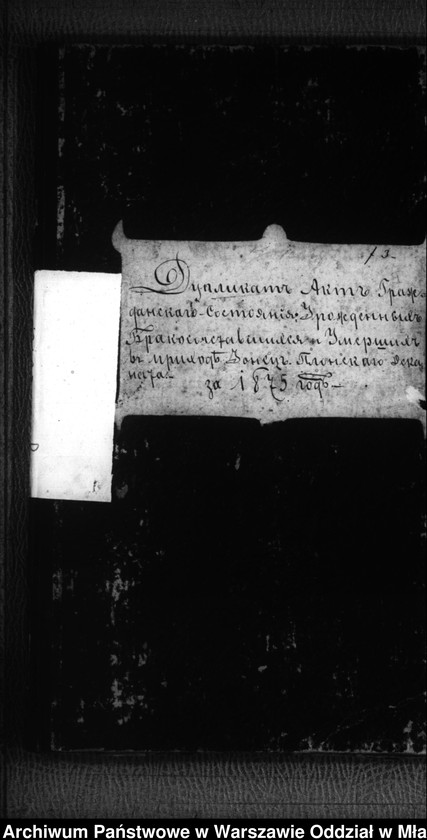 13
Дупликатъ Актъ Граж-
данскаго-Состоянія; Урожденныхъ
Бракосочетавшихся и Умершихъ
въ приходѣ Плонскаго Дека
ната
за 1875 годъ
Archiwum Państwowe w Warszawie Oddział w Mła